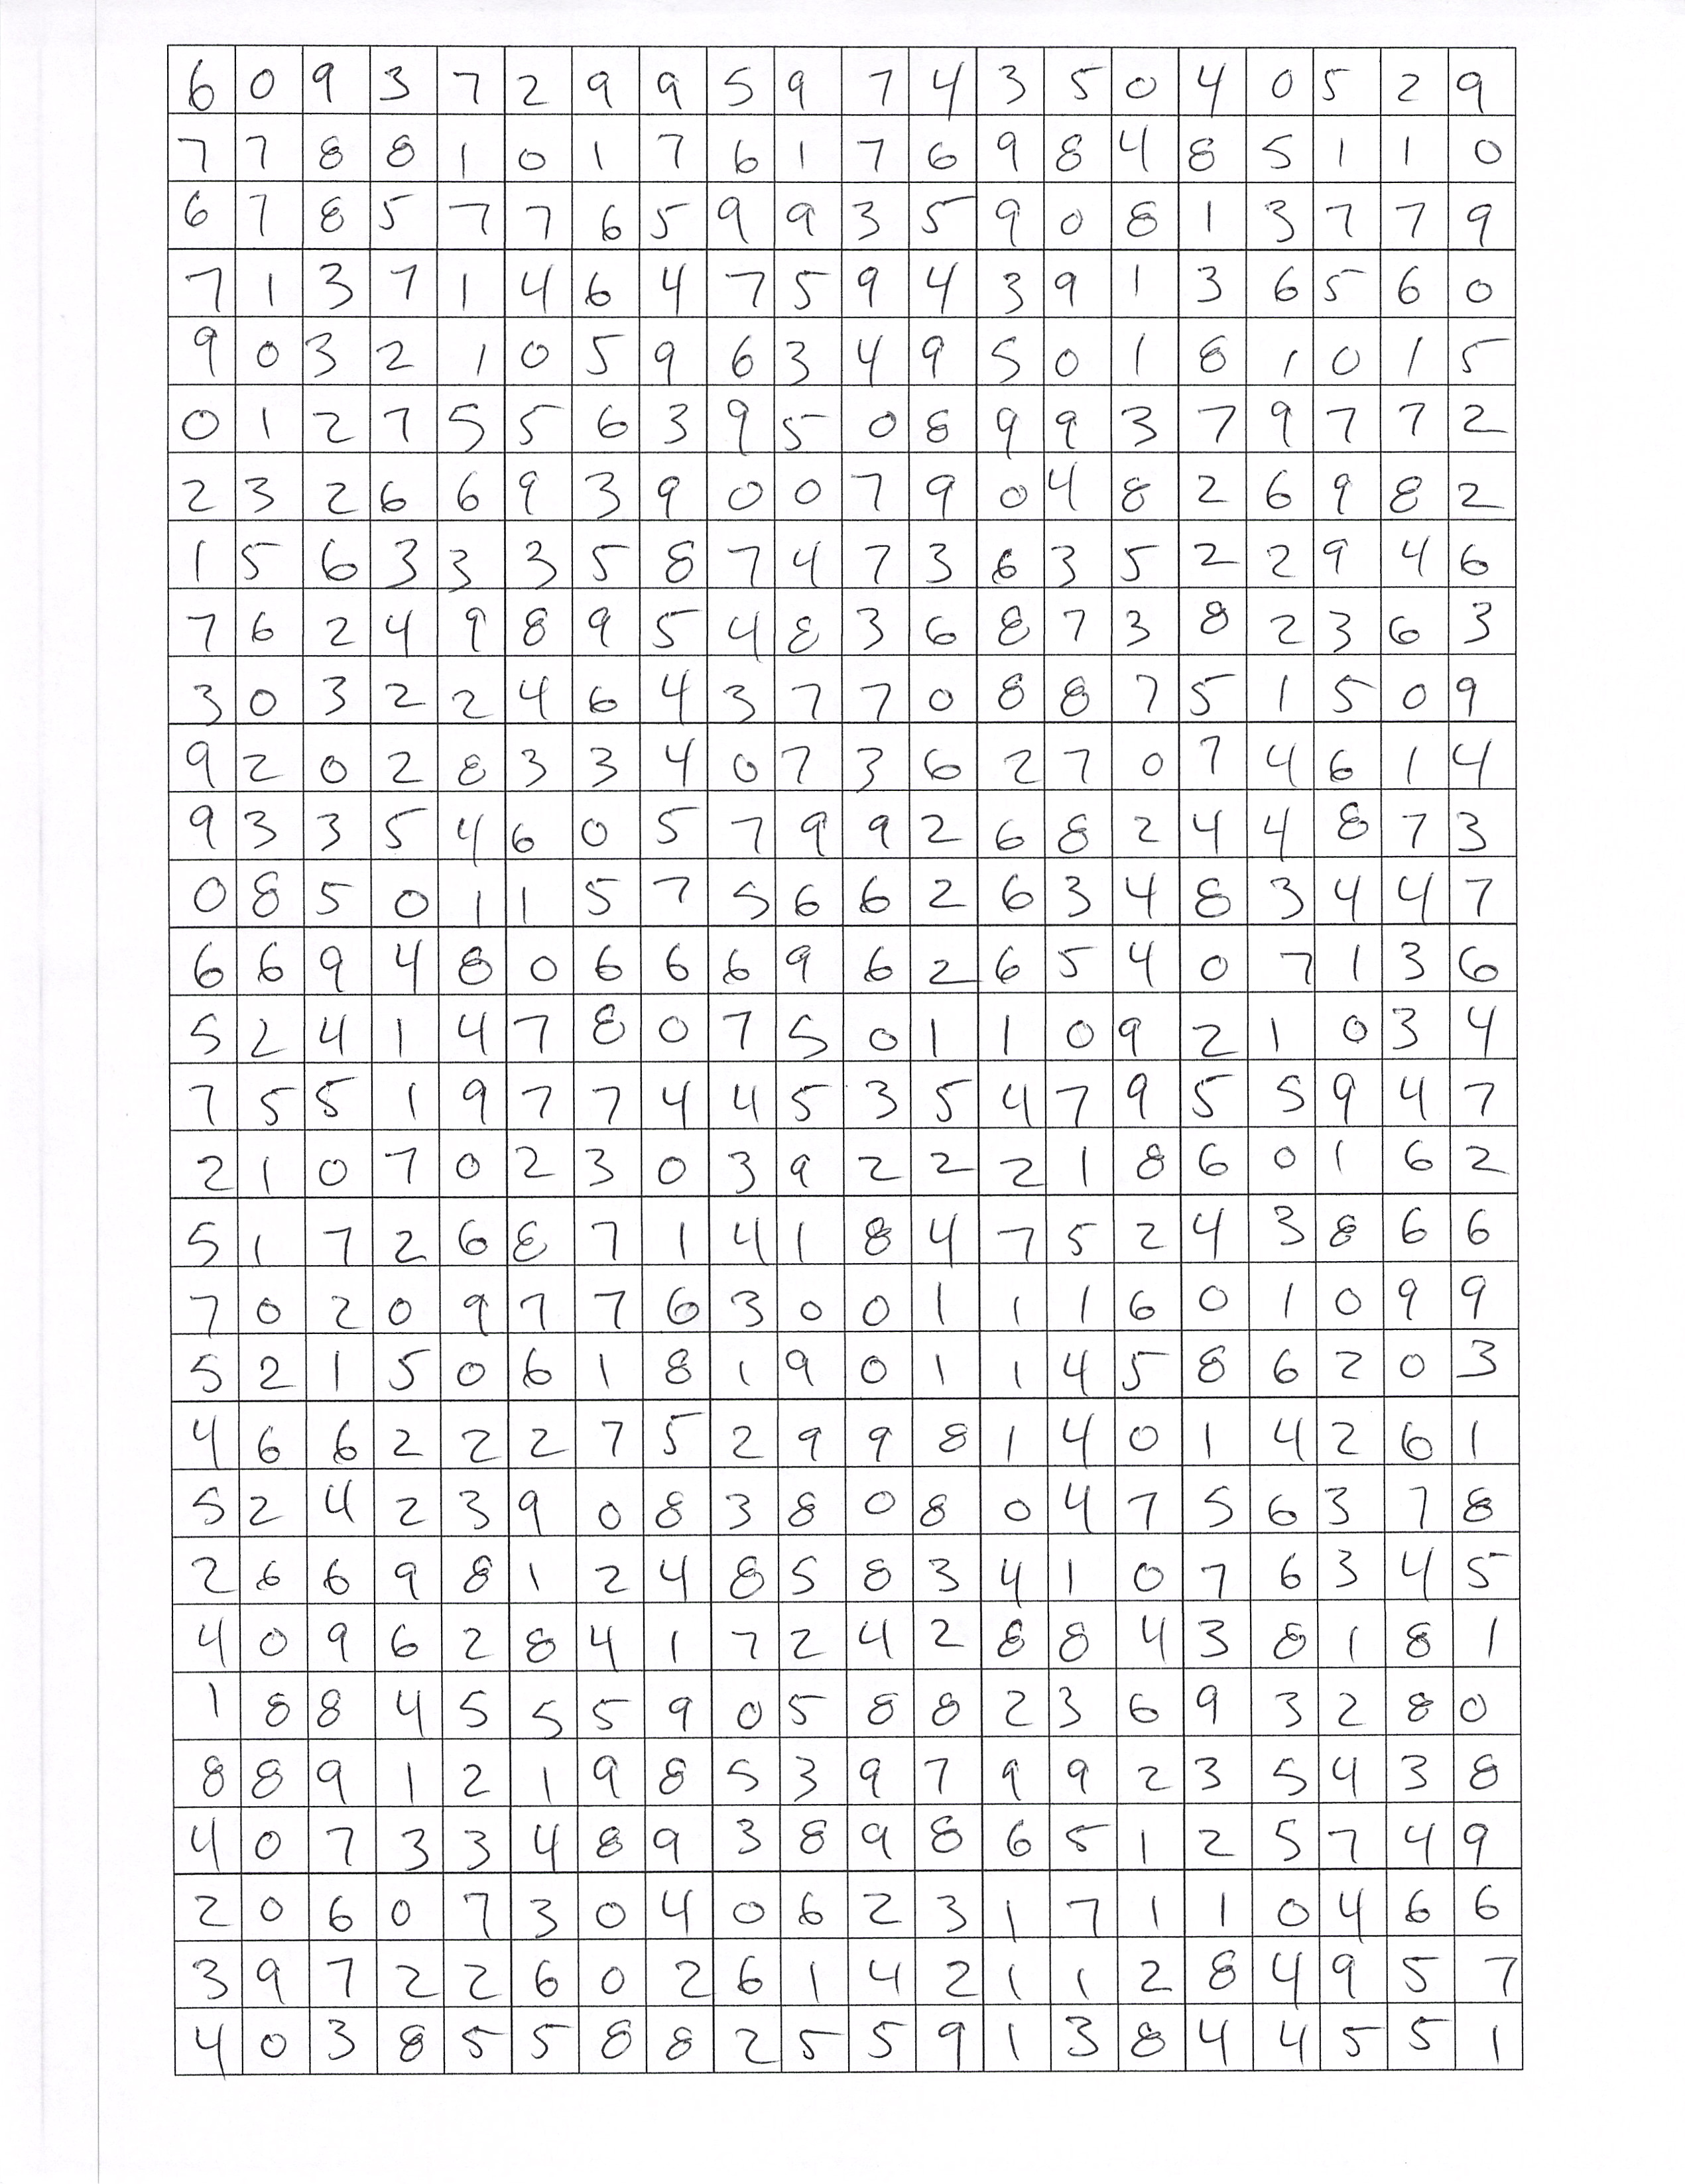 6 0 9 3 7 2 9 9 5 9 7 4 3 5 0 4 0 5 2 9
7 7 8 8 1 0 1 7 6 1 7 6 9 8 4 8 5 1 1 0
6 7 8 5 7 7 6 5 9 9 3 5 9 0 8 1 3 7 7 9
7 1 3 7 1 4 6 4 7 5 9 4 3 9 1 3 6 5 6 0
9 0 3 2 1 0 5 9 6 3 4 9 5 0 1 8 1 0 1 5
0 1 2 7 5 5 6 3 9 5 0 8 9 9 3 7 9 7 7 2
2 3 2 6 6 9 3 9 0 0 7 9 0 4 8 2 6 9 8 2
1 5 6 3 3 3 5 8 7 4 7 3 6 3 5 2 2 9 4 6
7 6 2 4 9 8 9 5 4 8 3 6 8 7 3 8 2 3 6 3
3 0 3 2 2 4 6 4 3 7 7 0 8 8 7 5 1 5 0 9
9 2 0 2 8 3 3 4 0 7 3 6 2 7 0 7 4 6 1 4
9 3 3 5 4 6 0 5 7 9 9 2 6 8 2 4 4 8 7 3
0 8 5 0 1 1 5 7 5 6 6 2 6 3 4 8 3 4 4 7
6 6 9 4 8 0 6 6 6 9 6 2 6 5 4 0 7 1 3 6
5 2 4 1 4 7 8 0 7 5 0 1 1 0 9 2 1 0 3 4
7 5 5 1 9 7 7 4 4 5 3 5 4 7 9 5 5 9 4 7
2 1 0 7 0 2 3 0 3 9 2 2 2 1 8 6 0 1 6 2
5 1 7 2 6 8 7 1 4 1 8 4 7 5 2 4 3 8 6 6
7 0 2 0 9 7 7 6 3 0 0 1 1 1 6 0 1 0 9 9
5 2 1 5 0 6 1 8 1 9 0 1 1 4 5 8 6 2 0 3
4 6 6 2 2 2 7 5 2 9 9 8 1 4 0 1 4 2 6 1
5 2 4 2 3 9 0 8 3 8 0 8 0 4 7 5 6 3 7 8
2 6 6 9 8 1 2 4 8 5 8 3 4 1 0 7 6 3 4 5
4 0 9 6 2 8 4 1 7 2 4 2 8 8 4 3 8 1 8 1
1 8 8 4 5 5 5 9 0 5 8 8 2 3 6 9 3 2 8 0
8 8 9 1 2 1 9 8 5 3 9 7 9 9 2 3 5 4 3 8
4 0 7 3 3 4 8 9 3 8 9 8 6 5 1 2 5 7 4 9
2 0 6 0 7 3 0 4 0 6 2 3 1 7 1 1 0 4 6 6
3 9 7 2 2 6 0 2 6 1 4 2 1 1 2 8 4 9 5 7
4 0 3 8 5 5 8 8 2 5 5 9 1 3 8 4 4 5 5 1